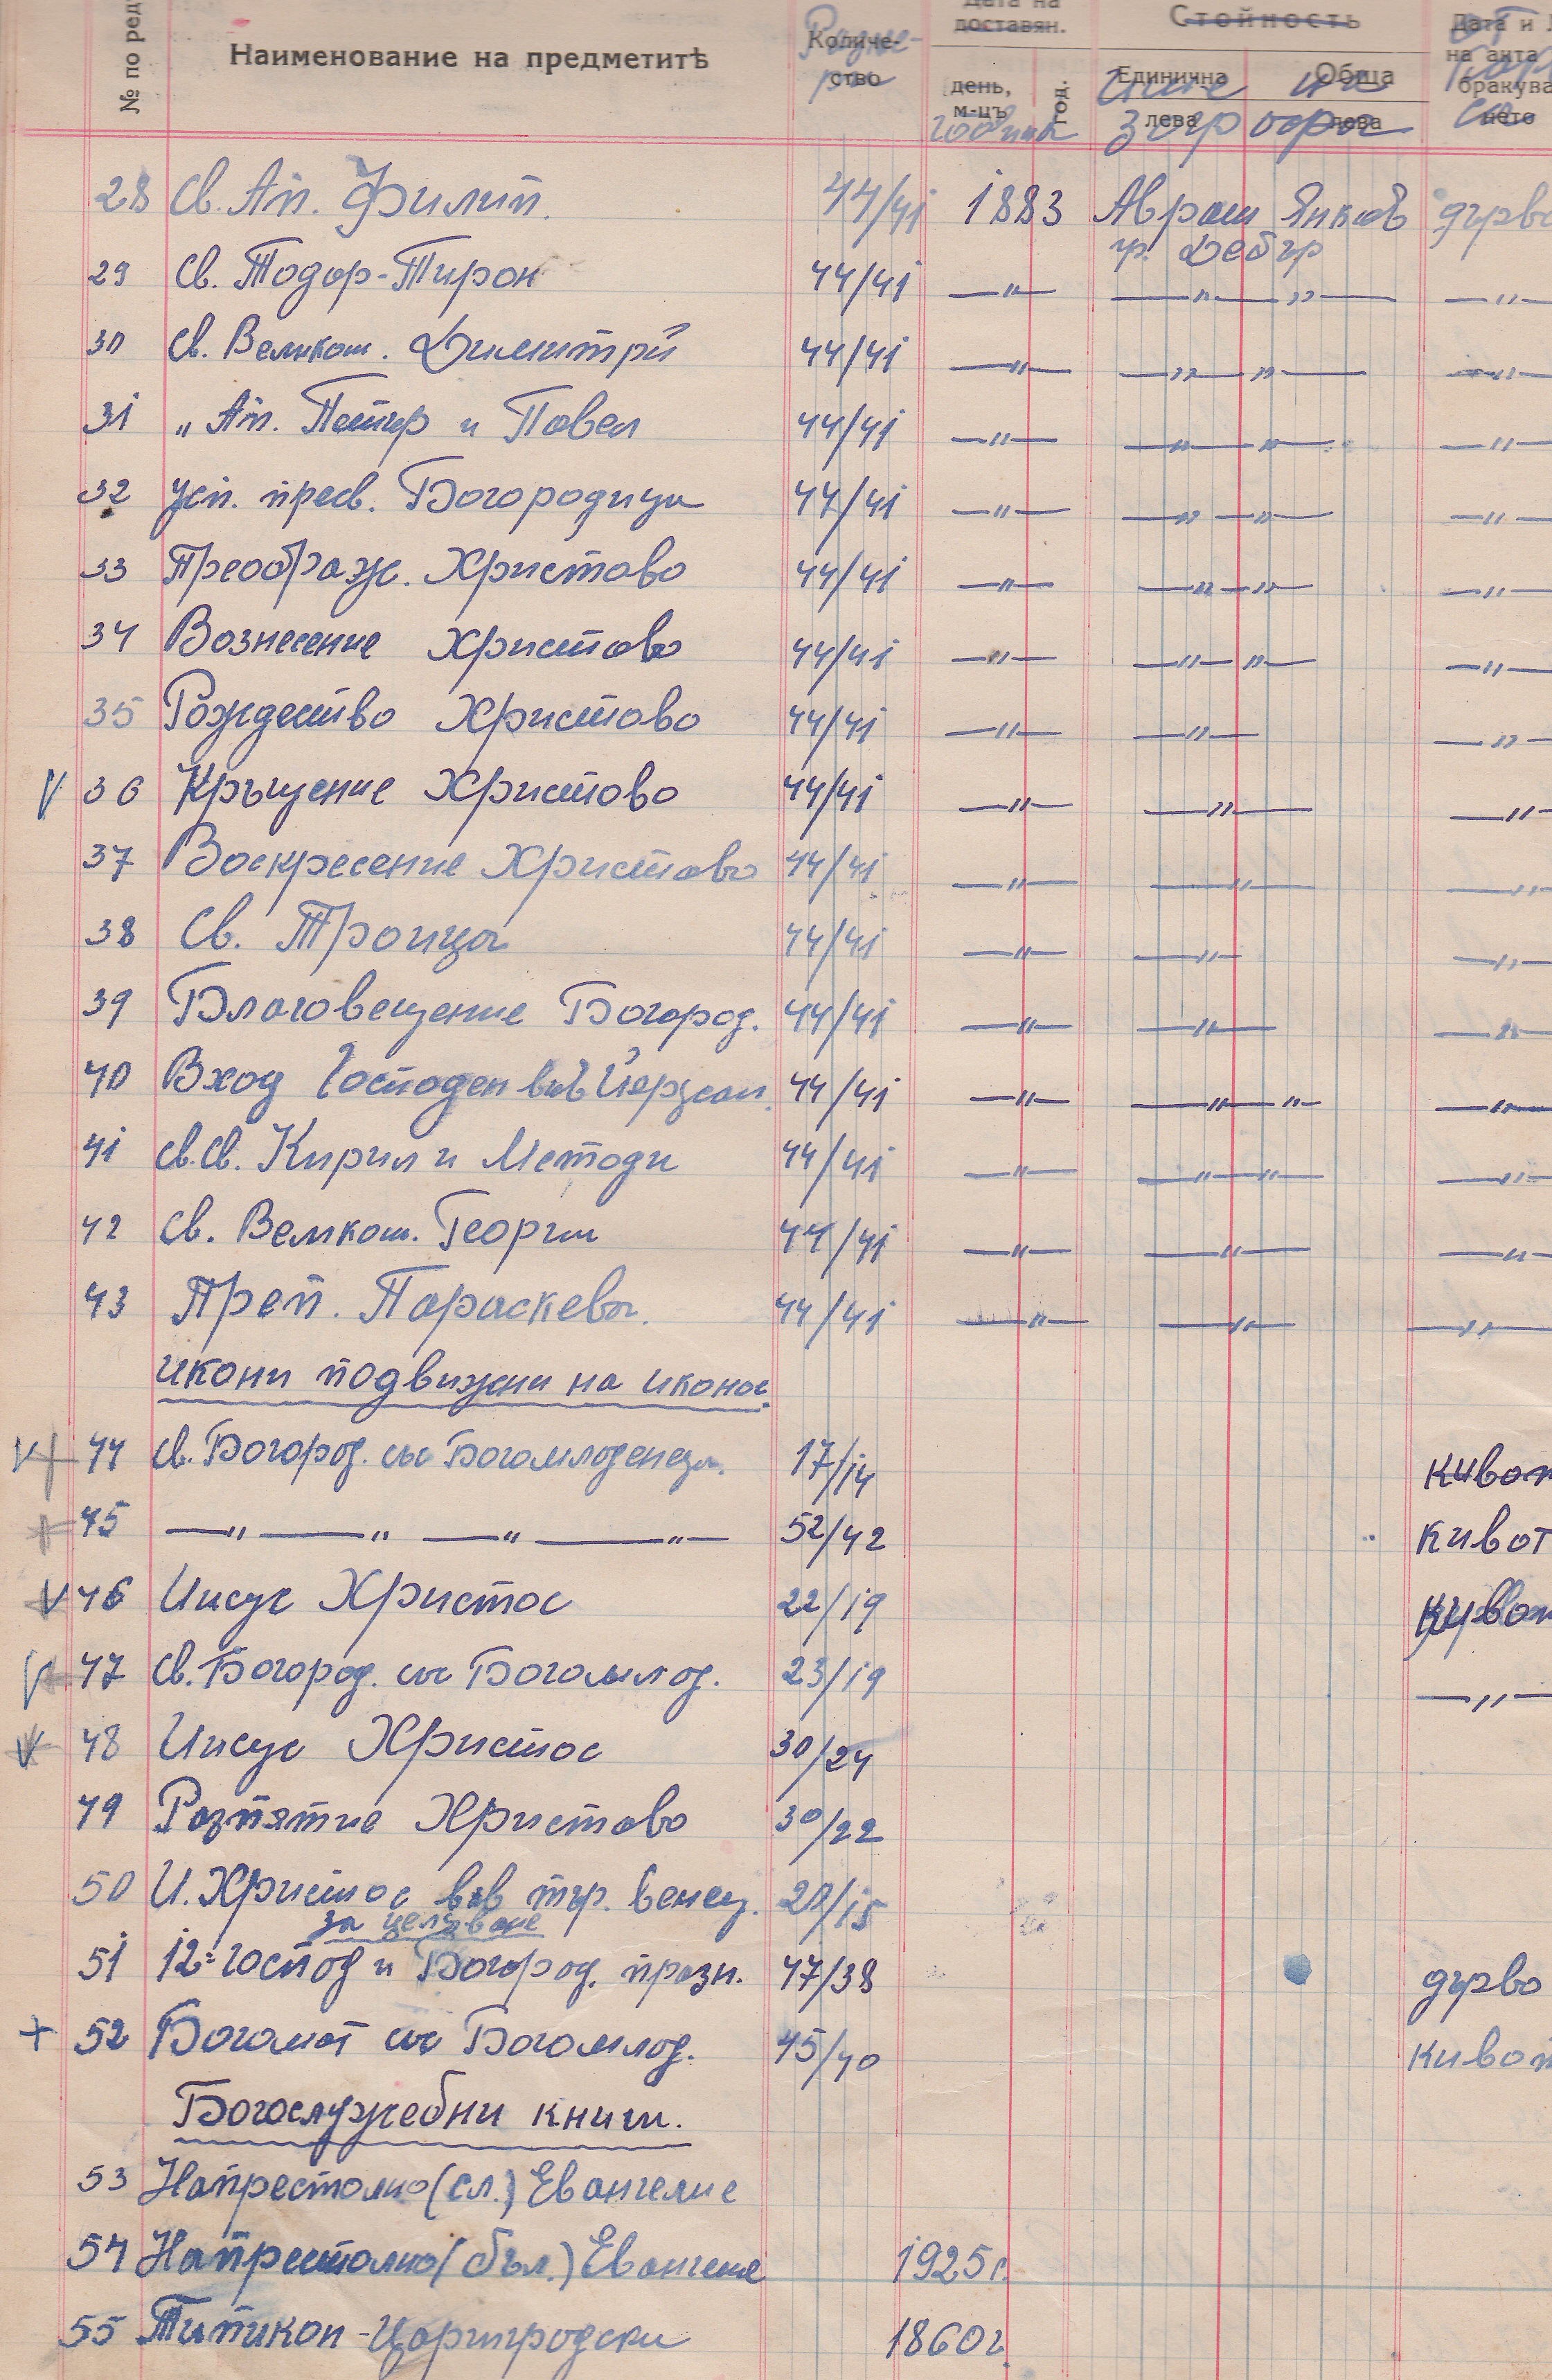 № по ред
Наименование на предметитѣ
Количе-
ство
Разме-
ри
Дата на
доставян.
день,
м-цъ
год.
годинa
Стойность
Единична
лева
Обща
лева
име на
зогр
Дата и
на акта
бракува
нето
28 Св. Ап. Филип. 44/41 1883 Аврам Янков дърво
гр. Дебър
29 Св. Тодор-Тирон 44/41 —"— —"—"— —"—
30 Св. Великом. Димитрй 44/41 —"— —"—"— —"—
31 „ Ап. Петър и Павел 44/41 —"— —"—"— —"—
32 Усп. пресв. Богородици 44/41 —"— —"—"— —"—
33 Преображ. Христово 44/41 —"— —"—"— —"—
34 Вознесение Христово 44/41 —"— —"—"— —"—
35 Рождество Христово 44/41 —"— —"— —"—
V 36 Кръщение Христово 44/41 —"— —"— —"—
37 Воскресение Христово 44/41 —"— —"— —"—
38 Св. Троица 44/41 —"— —"— —"—
39 Благовещение Богород. 44/41 —"— —"— —"—
40 Вход Господен във Иерусал. 44/41 —"— —"—"— —"—
41 св. св. Кирил и Методи 44/41 —"— —"—"— —"—
42 Св. Великом. Георги 44/41 —"— —"— —"—
43 Преп. Параскева. 44/41 —"— —"— —"—
икони подвижни на иконос.
V+ 44 св. Богород. със Богомладенеца. 17/14 кивот
+ 45 —"——"—"——"— 52/42 кивот
V 46 Иисус Христос 22/19
V 47 св. Богород. със Богомлад. 23/19 —"—
V 48 Иисус Христос 30/24
49 Разпятие Христово 30/22
50 И. Христос във тър. венец. 20/15
за целуване
51 12= господ и Богород. празн. 47/38 дърво
+ 52 Богомат със Богомлад. 45/40 кивот
Богослужебни книги.
53 Напрестолно (сл.) Евангелие
54 Напрестолно (бъл.) Евангелие 1925г.
55 Типикон-Цариградски 1860г.